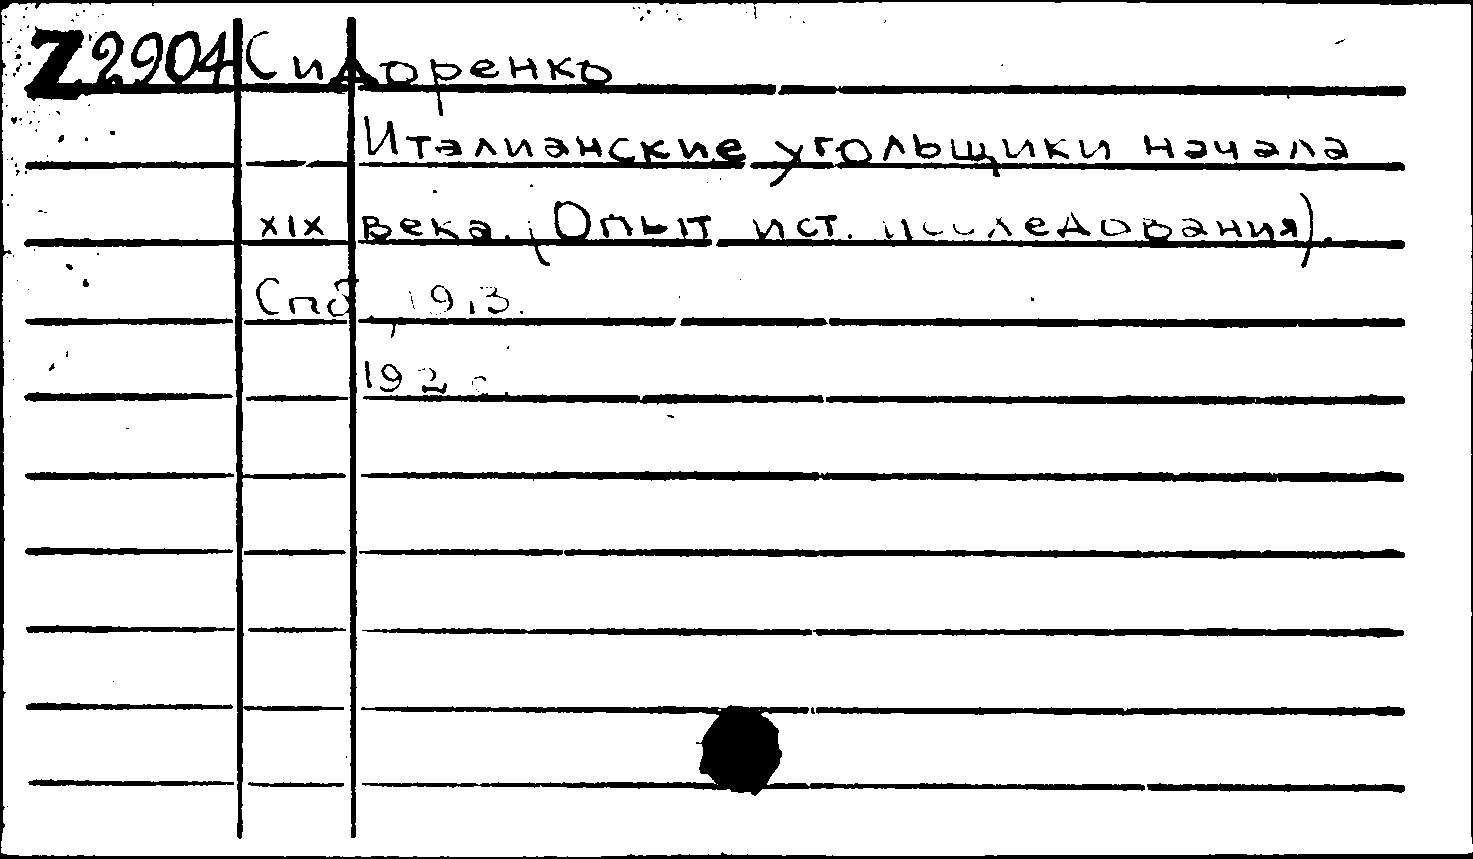 Z2904 Сидоренко
Италианские угольщики начала
XIX века. (Опыт ист. исследования).
Спб., 1913.
192 с.